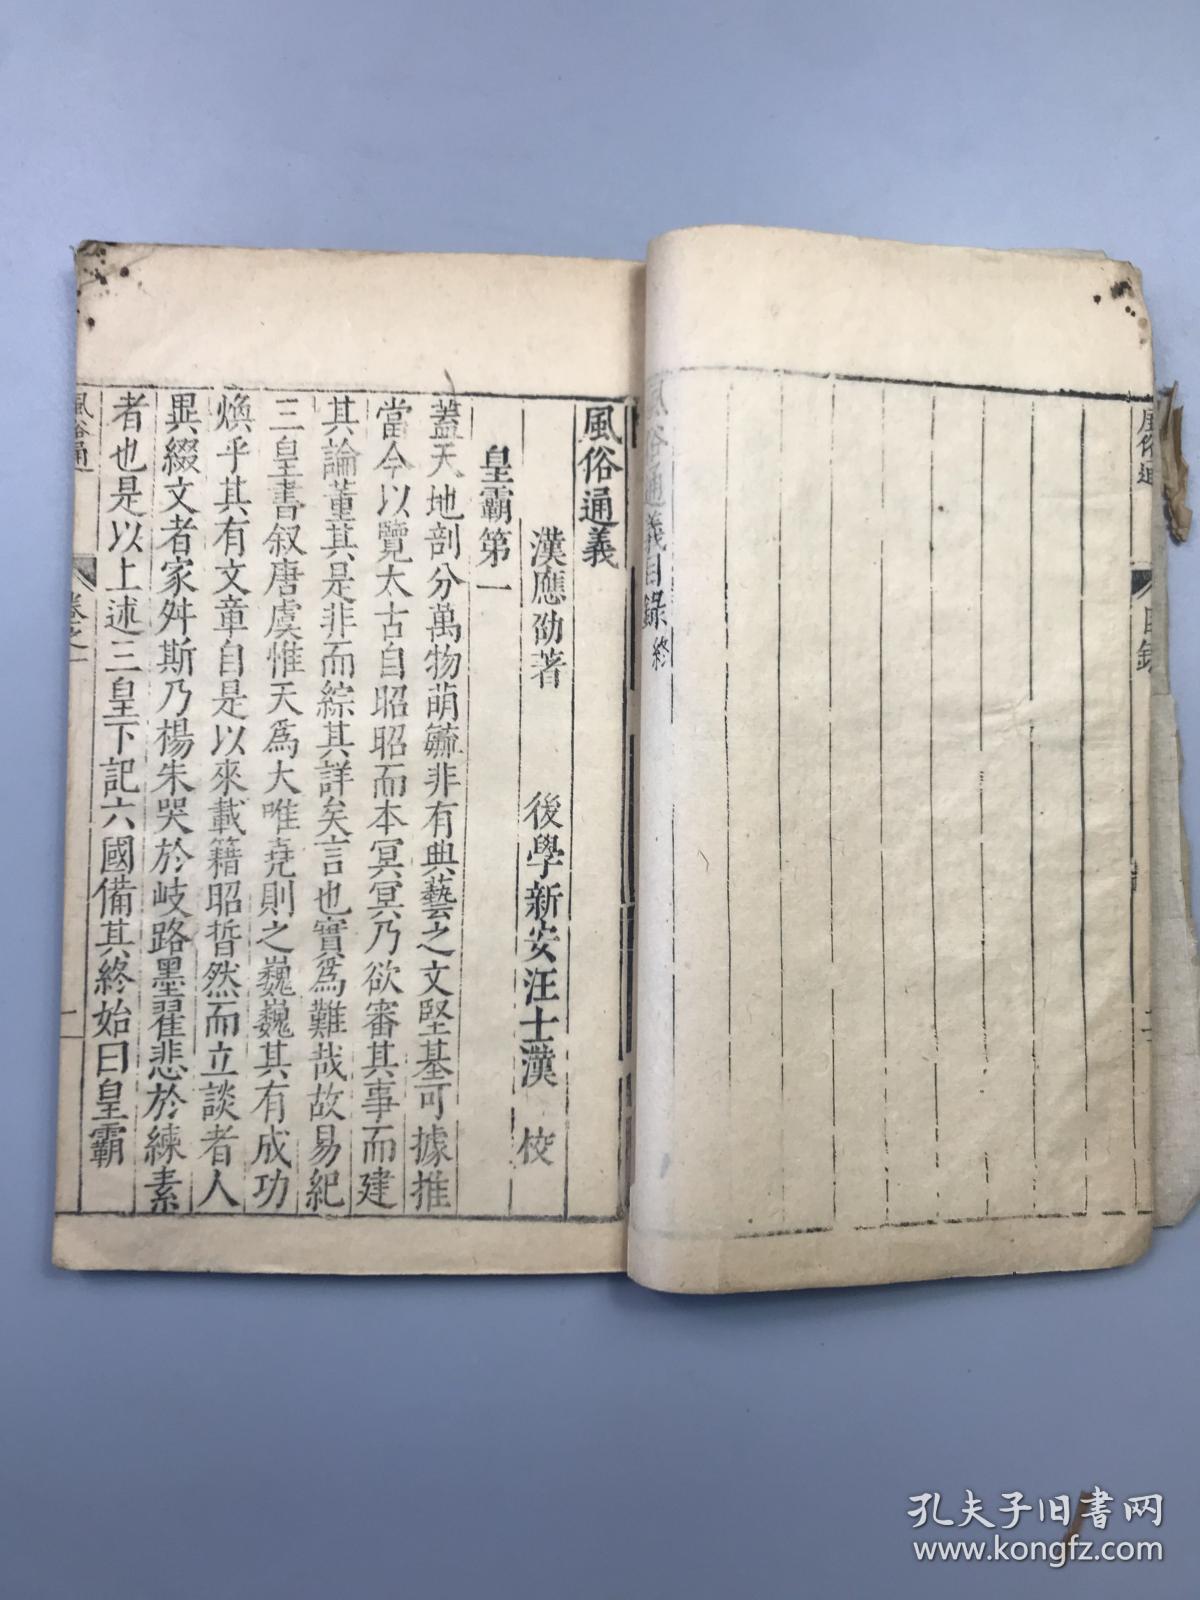 風俗通
目錄
二
風俗通義目錄終
風俗通義
漢應劭著　後學新安汪士漢　校
皇霸第一
蓋天地剖分萬物萌毓非有典藝之文堅基可據推
當今以覽太古自昭昭而本冥冥乃欲審其事而建
其論董其是非而綜其詳矣言也實爲難哉故易紀
三皇書叙唐虞惟天爲大唯堯則之巍巍其有成功
煥乎其有文章自是以來載籍昭晢然而立談者人
異綴文者家舛斯乃楊朱哭於岐路墨翟悲於練素
者也是以上述三皇下記六國備其終始曰皇霸
風俗通
卷之一
一
孔夫子旧书网
www.kongfz.com